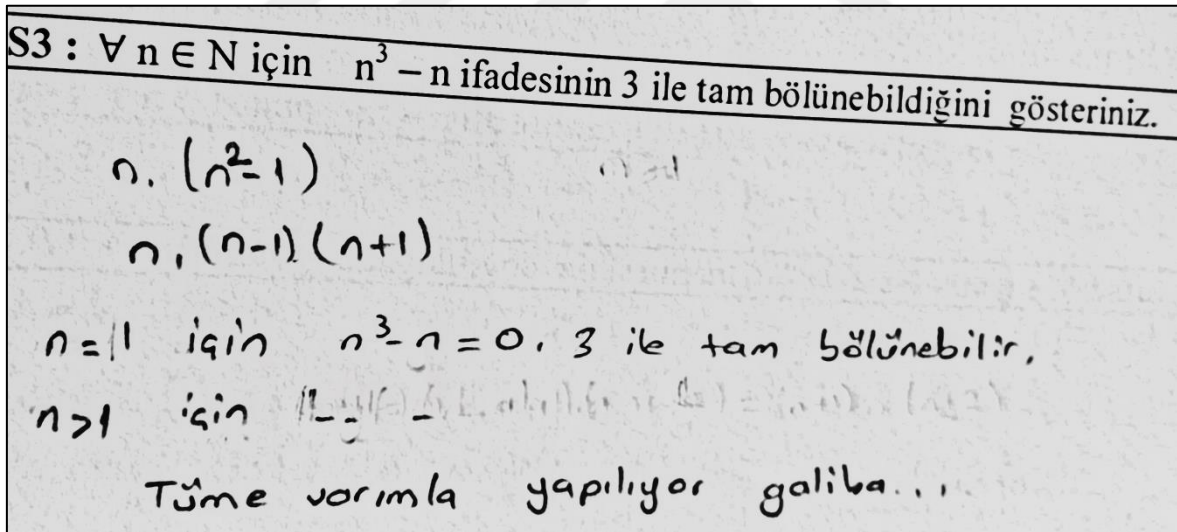 S3 : ∀ n ∈ N için n³ – n ifadesinin 3 ile tam bölünebildiğini gösteriniz.
n. (n²-1)
n. (n-1) (n+1)
n=1 için n³-n=0. 3 ile tam bölünebilir.
n>1 için
Tüme varımla yapılıyor galiba...